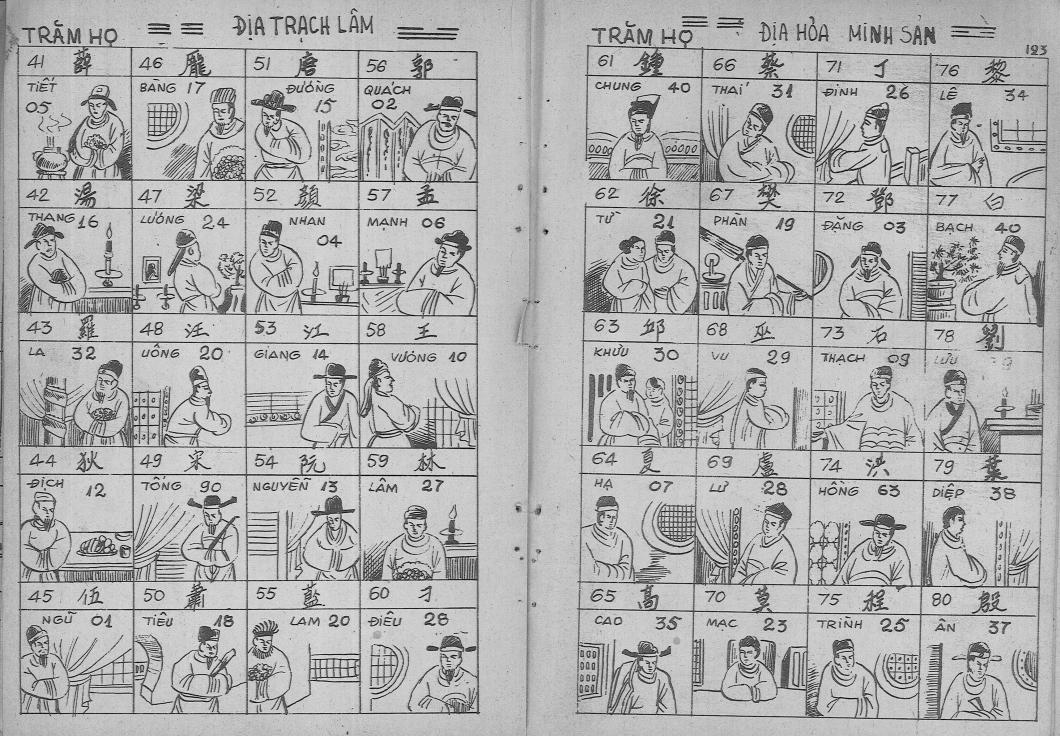 TRĂM HỌ
ĐỊA TRẠCH LÂM
41 薛
46 龐
51 唐
56 郭
TIẾT 05
BÀNG 17
ĐƯỜNG 15
QUÁCH 02
42 湯
47 梁
52 顏
57 孟
THANG 16
LƯƠNG 24
NHAN 04
MẠNH 06
43 羅
48 汪
53 江
58 王
LA 32
UÔNG 20
GIANG 14
VƯƠNG 10
44 狄
49 宋
54 阮
59 林
ĐỊCH 12
TỐNG 90
NGUYỄN 13
LÂM 27
45 伍
50 蕭
55 藍
60 刁
NGŨ 01
TIÊU 18
LAM 20
ĐIÊU 28
TRĂM HỌ
ĐỊA HỎA MINH SẢN
123
61 鍾
66 蔡
71 丁
76 黎
CHUNG 40
THAI 31
ĐINH 26
LÊ 34
62 徐
67 樊
72 鄧
77 白
TỪ 21
PHÀN 19
ĐẶNG 03
BẠCH 40
63 邱
68 巫
73 石
78 劉
KHƯU 30
VU 29
THẠCH 09
LƯU
64 夏
69 盧
74 洪
79 葉
HẠ 07
LƯ 28
HỒNG 63
DIỆP 38
65 高
70 莫
75 程
80 殷
CAO 35
MẠC 23
TRÌNH 25
ÂN 37